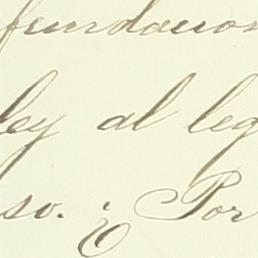 fundacion
ley al leg
so. ¿Por